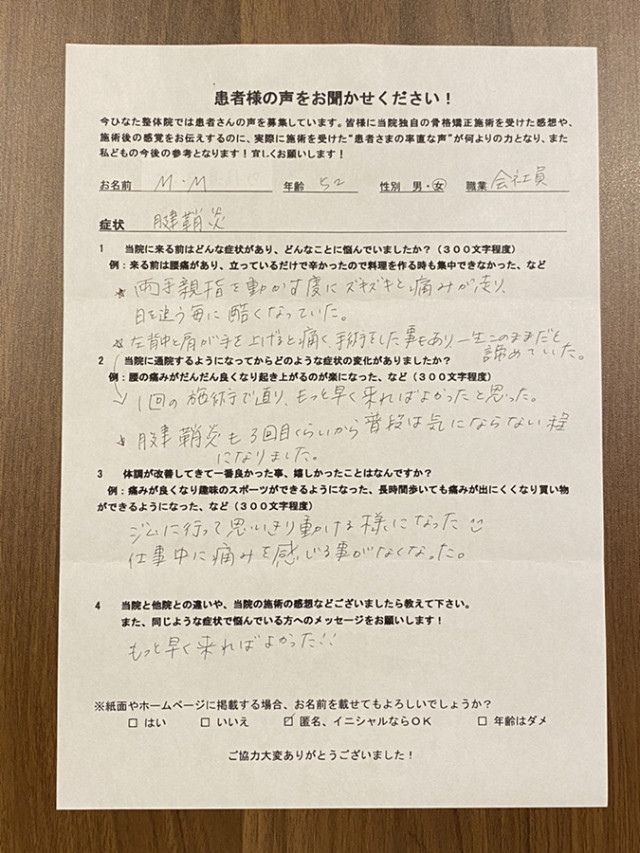 患者様の声をお聞かせください！
今ひなた整体院では患者さんの声を募集しています。皆様に当院独自の骨格矯正施術を受けた感想や、
施術後の感覚をお伝えするのに、実際に施術を受けた“患者さまの率直な声”が何よりの力となり、また
私どもの今後の参考となります！宜しくお願いします！
お名前 M・M 年齢 52 性別 男・女 職業 会社員
症状 腱鞘炎
1 当院に来る前はどんな症状があり、どんなことに悩んでいましたか？（３００文字程度）
例：来る前は腰痛があり、立っているだけで辛かったので料理を作る時も集中できなかった、など
★両手親指を動かす度にズキズキと痛みが走り、
日を追う毎に酷くなっていた。
★左背中と肩が手を上げると痛く、手術をした事もあり一生このままだと
諦めていた。
2 当院に通院するようになってからどのような症状の変化がありましたか？
例：腰の痛みがだんだん良くなり起き上がるのが楽になった、など（３００文字程度）
↘1回の施術で直り、もっと早く来ればよかったと思った。
★腱鞘炎も3回目くらいから普段は気にならない程
になりました。
3 体調が改善してきて一番良かった事、嬉しかったことはなんですか？
例：痛みが良くなり趣味のスポーツができるようになった、長時間歩いても痛みが出にくくなり買い物
ができるようになった、など（３００文字程度）
ジムに行って思いきり動ける様になった
仕事中に痛みを感じる事がなくなった。
4 当院と他院との違いや、当院の施術の感想などございましたら教えて下さい。
また、同じような症状で悩んでいる方へのメッセージをお願いします！
もっと早く来ればよかった!!
※紙面やホームページに掲載する場合、お名前を載せてもよろしいでしょうか？
□ はい □ いいえ ☑ 匿名、イニシャルならＯＫ □ 年齢はダメ
ご協力大変ありがとうございました！